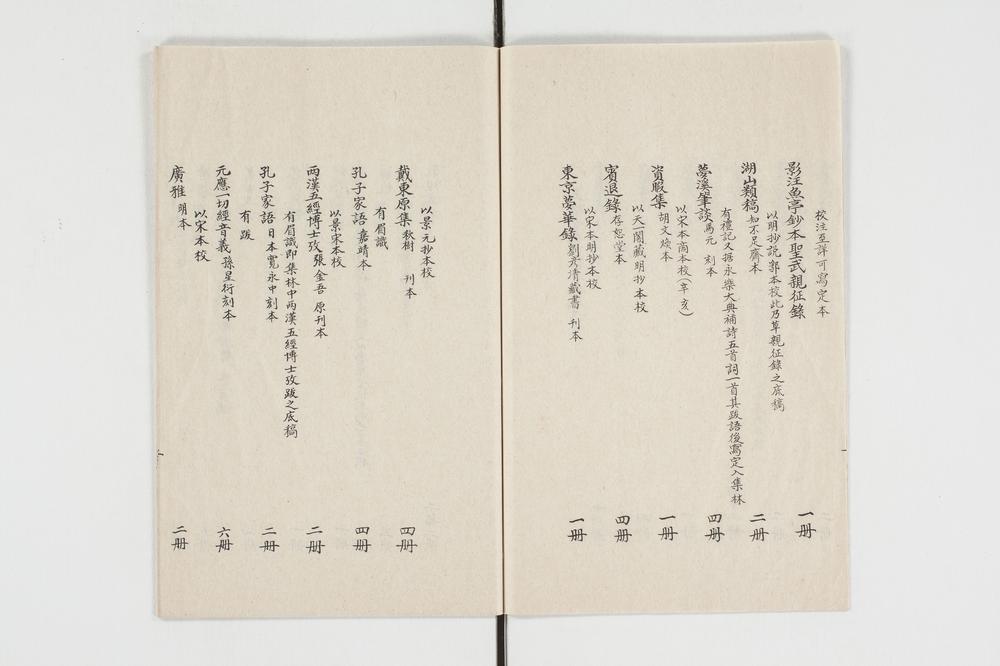 校注至詳可寫定本
影汪魚亭鈔本聖武親征錄 一册
以明抄說郛本校此乃草親征錄之底稿
湖山類稿 知不足齋本 二册
有禮記又据永樂大典補詩五首詞一首其跋語後寫定入集林
夢溪筆談 馬元 刻本 四册
以宋本商本校(辛亥)
資暇集 胡文煥本 一册
以天一閣藏明抄本校
賓退錄 存恕堂本 四册
以宋本明抄本校
東京夢華錄 劉秀清藏書 刊本 一册
以景元抄本校
戴東原集 秋樹 刊本 四册
有眉識
孔子家語 嘉靖本 四册
以景宋本校
兩漢五經博士攷 張金吾 原刊本 二册
有眉識即集林中兩漢五經博士攷跋之底稿
孔子家語 日本寬永中刻本 二册
有跋
元應一切經音義 孫星衍刻本 六册
以宋本校
廣雅 明本 二册